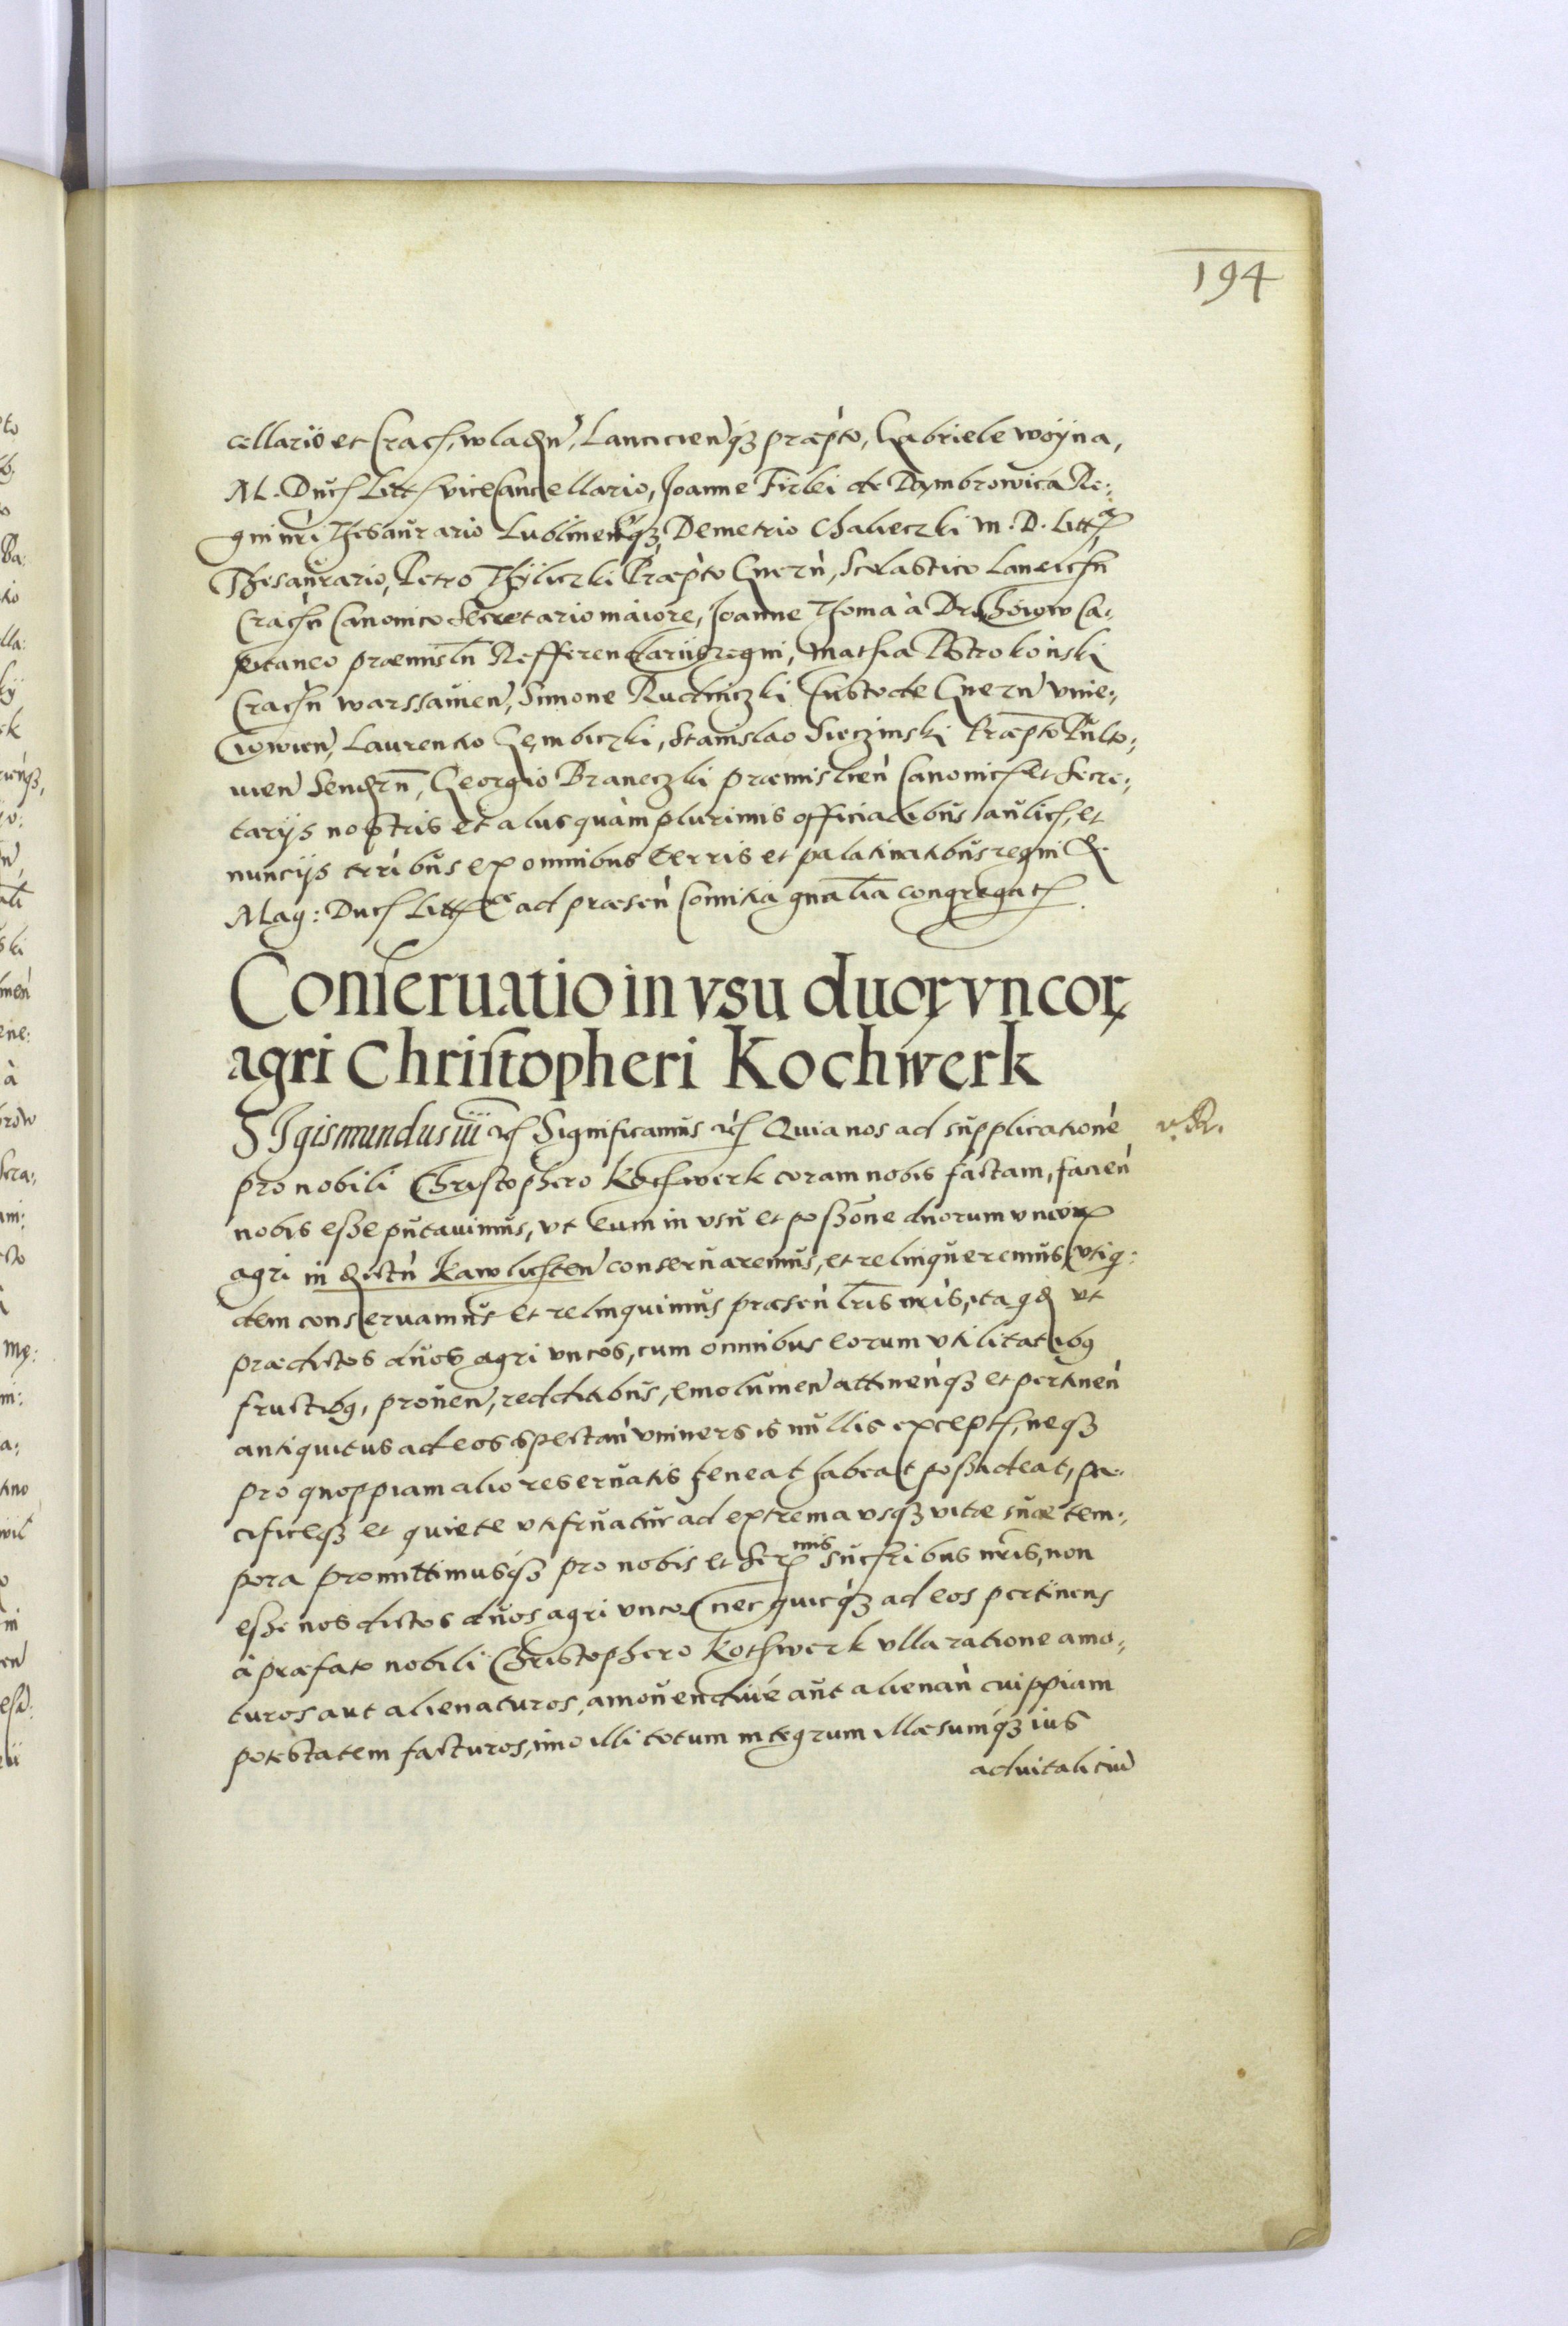 194
cellario et Crach, wladn, Lancicienq₃ præpto, Gabriele woÿna,
M. Duch Litt vicecancellario, Joanne Firlei de Dambrowica Re:
gni nri Thesaurario Lublinenq₃, Demetrio Chaleczki M. D. Litt
Thesaurario, Petro Thÿliczki Præpto Gnezn, Scolastico Lancicn
Cracn Canonico Secretario maiore, Joanne Thoma à Drohoiow Ca:
pitaneo præmisln Refferendariis regni, Mathia Pstrokonski
Cracn warssauien, Simone Rudniczki Custode Gnezn vnie:
iowien, Laurentio Gembiczki, Stanislao Sieczinski Præpto Pulto:
uien Sendn, Georgio Braneczki præmislien Canonich et Secre:
tarijs nostris et alijs quàmplurimis officialibus aulich, et
nuncijs terribus ex omnibus terris et palatinatibus regni &
Mag: Duch Litt ad præsen Comitia gnalia congregat.
Conseruatio in vsu duoꝝ vncoꝝ
agri Christopheri Kochwerk
SIgismundus iii Significamus Quia nos ad supplicatione
v. R.
pro nobili Christophero Kochwerk coram nobis factam, facien
nobis esse putauimus, vt eum in vsu et possone duorum vncoꝝ
agri in districtu Kawlichten conseruaremus, et relinqueremus, vtiq:
dem conseruamus et relinquimus præsen lris nris, ita qd vt
prædictos duos agri vncos, cum omnibus eorum vtilitatibg
fructibg, prouen, redditibus, emolumen attinenq₃ et pertinen
antiquitus ad eos spectan vniuersis nullis except, neq₃
pro quoppiam alio reseruatis teneat habeat possideat, pa:
cificeq₃ et quiete vtifruatur ad extrema vsq₃ vitæ suæ tem:
pora promittimusq₃ pro nobis et Ser^mis succribus nris, non
esse nos dictos duos agri vncos nec quicq₃ ad eos pertinens
à præfato nobili Christophero Kothwerk vlla ratione amo:
turos aut alienaturos, amouendiue aut alienan cuippiam
potestatem facturos, imo illi totum integrum illæsumq₃ ius
aduitaliciu